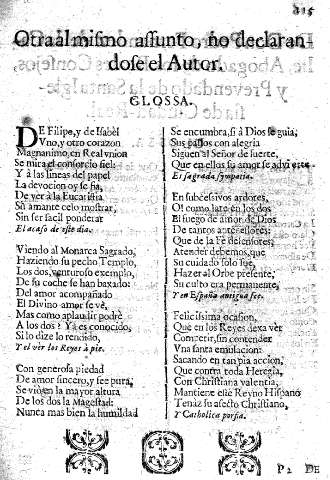 815
Otra àl mismo assunto, no declaran
dose el Autor.
GLOSSA.
DE Filipo, y de Isabèl
Vno, y otro corazon
Magnanimo, en Real vnion
Se mira el consorcio fiel:
Y à las lineas del papel
La devocion oy se fia,
De vèr à la Eucaristia
Su amante celo mostrar,
Sin ser facil ponderar
El acaso de este dia.
Viendo al Monarca Sagrado,
Haziendo su pecho Templo,
Los dos, venturoso exemplo,
De su coche se han baxado:
Del amor acompañado
El Divino amor se vè,
Mas como aplaudir podrè
A los dos? Ya es conocido,
Si lo dize lo rendido,
Y el vèr los Reyes à pie.
Con generosa piedad
De amor sincero, y fee pura,
Se viò en la mayor altura
De los dos la Magestad:
Nunca mas bien la humildad
Se encumbra, si à Dios se guia,
Sus passos con alegria
Siguen al Señor de suerte,
Que en ellos su amor se advierte
El sagrada sympatia.
En subcessivos ardores,
O! como late en los dos
El fuego de amor de Dios
De tantos antecessores:
Que de la Fè defensores,
Atender debemos, que
Su cuidado solo fuè,
Hazer al Orbe presente,
Su culto era permanente,
Y en España antigua fee.
Felicissima ocasion,
Que en los Reyes dexa vèr
Competir, sin contender
Vna santa emulacion:
Sacando en tan pia accion,
Que contra toda Heregia,
Con Christiana valentia,
Mantiene este Reyno Hispano
Tenaz su afecto Christiano,
Y Catholica porfia.
P 2 DE